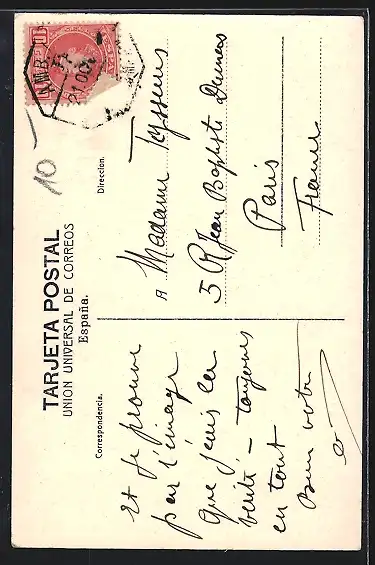 TARJETA POSTAL
UNION UNIVERSAL DE CORREOS
España.
Correspondencia.
Et je prouve
par l'image
que j'suis la
vérité – toujours
en tout
Bien votre
Direccion.
A Madame Teyssens
5 R Jean Baptiste Dumas
Paris
France
AMB
21 OC
10